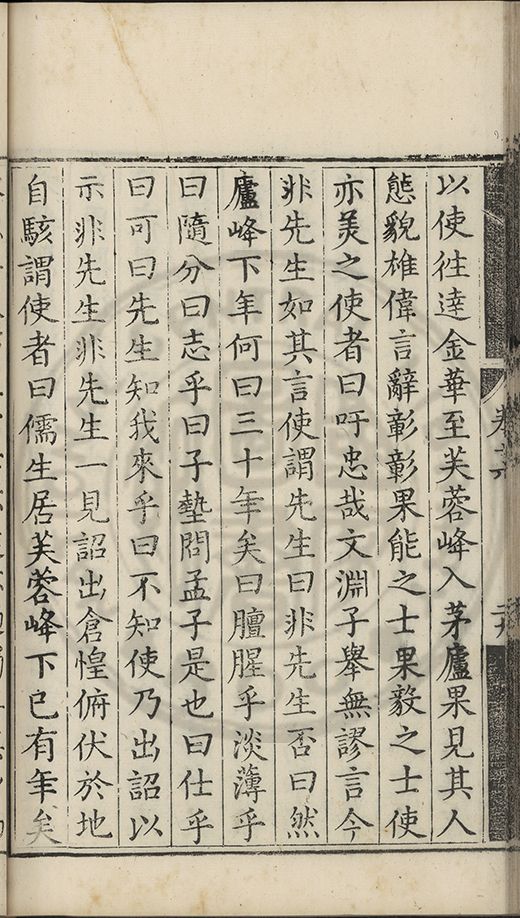 以使往達金華至芙蓉峰入茅廬果見其人
態貌雄偉言辭彰彰果能之士果毅之士使
亦羙之使者曰吁忠哉文淵子舉無謬言今
非先生如其言使謂先生曰非先生否曰然
廬峰下年何曰三十年矣曰膻腥乎淡薄乎
曰隨分曰志乎曰子墊問孟子是也曰仕乎
曰可曰先生知我來乎曰不知使乃出詔以
示非先生非先生一見詔出倉惶俯伏於地
自駭謂使者曰儒生居芙蓉峰下已有年矣